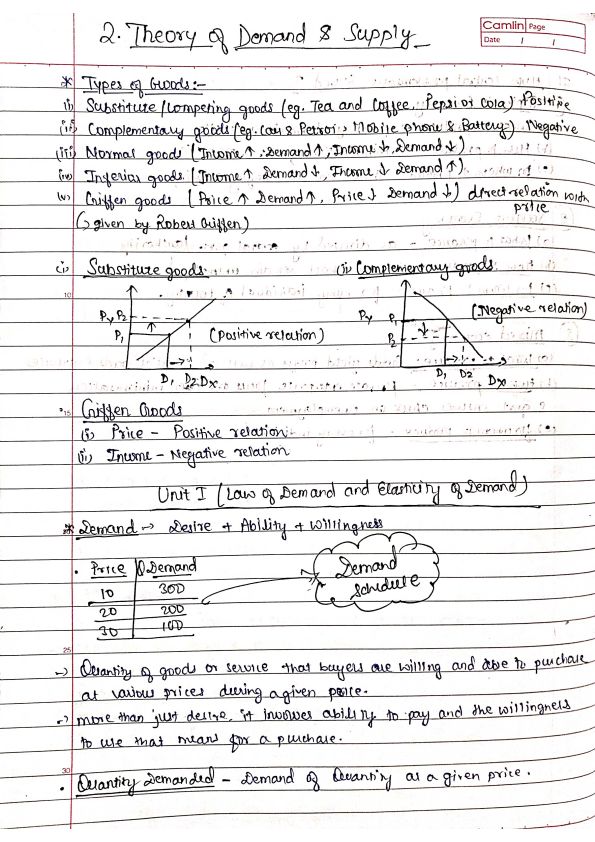 2. Theory of Demand & Supply
Camlin Page
Date / /
* Types of Goods :-
(i) Substitute / Competing goods (eg. Tea and Coffee, Pepsi or Cola) Positive
(ii) Complementary goods (eg. Car & Petrol, Mobile phone & Battery) Negative
(iii) Normal goods (Income ↑ Demand ↑, Income ↓, Demand ↓)
(iv) Inferior goods (Income ↑ Demand ↓, Income ↓ Demand ↑)
(v) Griffen goods (Price ↑ Demand ↑, Price ↓ Demand ↓) direct relation with
price
(→ given by Robert Griffen)
(i) Substitute goods (ii) Complementary goods
10
Py P2
P1
(Positive relation)
D1 D2 Dx
Py P1
P2
(Negative relation)
D1 D2 Dx
15 Griffen Goods
(i) Price - Positive relation
(ii) Income - Negative relation
Unit I (Law of Demand and Elasticity of Demand)
* Demand → Desire + Ability + Willingness
• Price Q Demand
10 300
20 200
30 100
Demand
Schedule
25
→ Quantity of goods or service that buyers are willing and able to purchase
at various prices during a given
→ more than just desire, it involves ability to pay and the willingness
to use that means for a purchase.
30
• Quantity Demanded - Demand of Quantity at a given price.